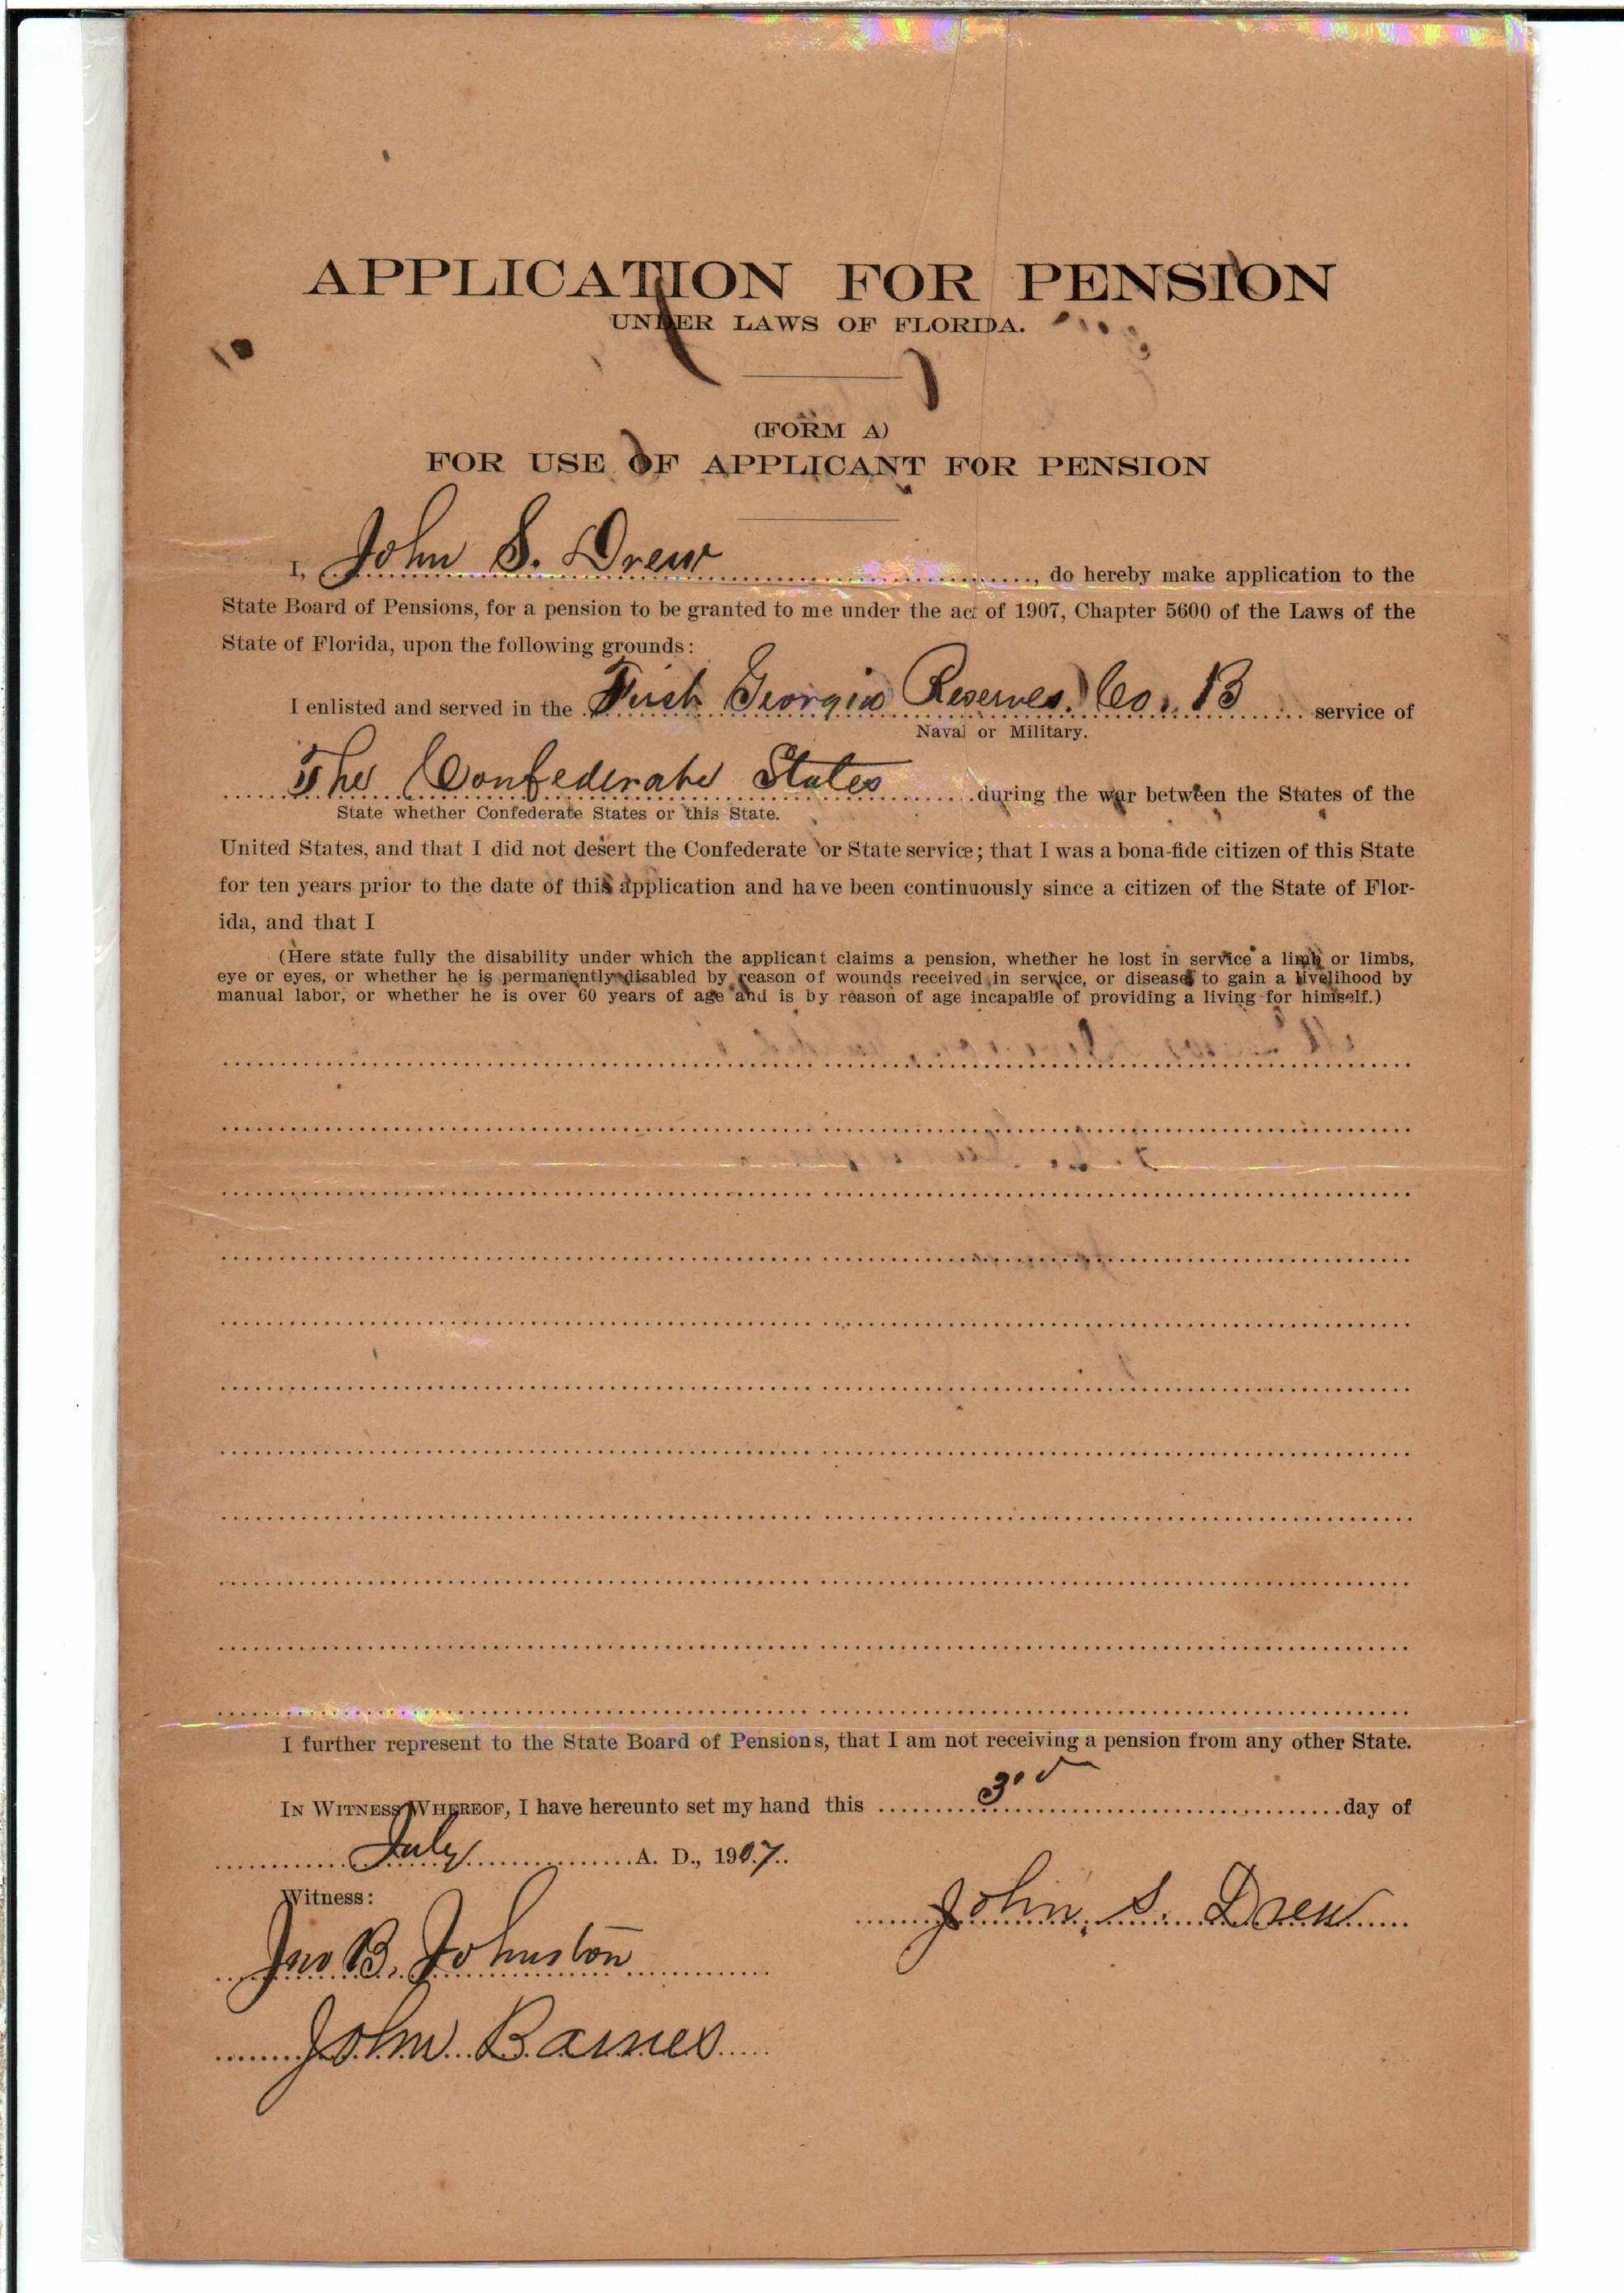 APPLICATION FOR PENSION
UNDER LAWS OF FLORIDA.
(FORM A)
FOR USE OF APPLICANT FOR PENSION
I, John S. Drew, do hereby make application to the
State Board of Pensions, for a pension to be granted to me under the act of 1907, Chapter 5600 of the Laws of the
State of Florida, upon the following grounds:
I enlisted and served in the First Georgia Reserves. Co. B service of
Naval or Military.
The Confederate States during the war between the States of the
State whether Confederate States or this State.
United States, and that I did not desert the Confederate or State service; that I was a bona-fide citizen of this State
for ten years prior to the date of this application and have been continuously since a citizen of the State of Flor-
ida, and that I
(Here state fully the disability under which the applicant claims a pension, whether he lost in service a limb or limbs,
eye or eyes, or whether he is permanently disabled by reason of wounds received in service, or disease to gain a livelihood by
manual labor, or whether he is over 60 years of age and is by reason of age incapable of providing a living for himself.)
I further represent to the State Board of Pensions, that I am not receiving a pension from any other State.
IN WITNESS WHEREOF, I have hereunto set my hand this 3rd day of
July A. D., 1907.
Witness:
John. S. Drew
Jno B. Johnston
John Barnes